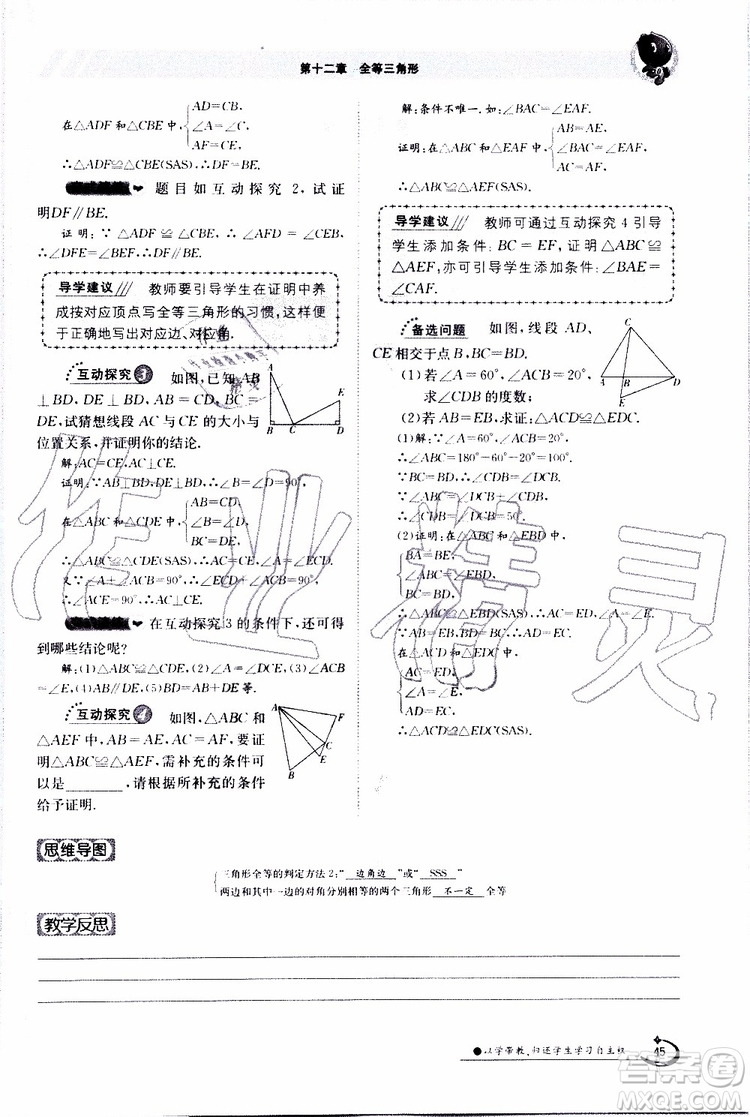 第十二章 全等三角形
AD=CB,
在△ADF 和△CBE 中,
∠A=∠C,
AF=CE,
∴△ADF≌△CBE(SAS).∴DF=BE.
题目如互动探究 2,试证
明DF∥BE.
证明:∵△ADF≌△CBE(已证),
∴∠DFE=∠BEF.∴DF∥BE.
导学建议
教师要引导学生在证明中养
成按对应顶点写全等三角形的习惯,这样便
于正确地写出对应边、对应角.
互动探究 3 如图,已知 AB
⊥BD,DE⊥BD,AB=CD,BC=
DE,试猜想线段 AC 与 CE 的大小与
位置关系,并证明你的结论.
A
E
B
C
D
解:AC=CE,AC⊥CE.
证明:∵AB⊥BD,DE⊥BD,∴∠B=∠D=90°,
AB=CD,
在△ABC 和△CDE 中,
∠B=∠D,
BC=DE,
∴△ABC≌△CDE(SAS).∴AC=CE,∠A=∠ECD.
又∵∠A+∠ACB=90°,∴∠ECD+∠ACB=90°,
∴∠ACE=90°,∴AC⊥CE.
在互动探究 3 的条件下,还可得
到哪些结论呢?
解:(1)△ABC≌△CDE,(2)∠A=∠DCE,(3)∠ACB
=∠E,(4)AB∥DE,(5)BD=AB+DE 等.
互动探究 4 如图,△ABC 和
△AEF 中,AB=AE,AC=AF,要使
△ABC≌△AEF,需补充的条件可
以是________,请根据所补充的条件
给予证明.
A
F
C
E
B
解:条件不唯一.如:∠BAC=∠EAF.
AB=AE,
证明:在△ABC 和△AEF 中,
∠BAC=∠EAF,
AC=AF,
∴△ABC≌△AEF(SAS).
导学建议
教师可通过互动探究 4 引导
学生添加条件:BC=EF,证明△ABC≌
△AEF,亦可引导学生添加条件:∠BAE=
∠CAF.
备选问题 如图,线段 AD,
CE相交于点 B,BC=BD.
(1)若∠A=60°,∠ACB=20°,
求∠CDB 的度数;
(2)若 AB=EB,求证:△ACD≌△EDC.
C
A
B
D
E
(1)解:∵∠A=60°,∠ACB=20°,
∴∠ABC=180°-60°-20°=100°.
∵BC=BD,∴∠DCB=∠CDB,
∵∠ABC=∠DCB+∠CDB,
∴∠CDB=∠DCB=50°.
(2)证明:在△ABC 和△EBD 中,
BA=BE,
∠ABC=∠EBD,
BC=BD,
∴△ABC≌△EBD(SAS).∴AC=ED,∠A=∠E.
∵AB=EB,BC=BD,∴AD=EC.
在△ACD 和△EDC 中,
AC=ED,
∠A=∠E,
AD=EC,
∴△ACD≌△EDC(SAS).
思维导图
三角形全等的判定方法 2:“边角边”或“SSS”
两边和其中一边的对角分别相等的两个三角形 不一定 全等
教学反思
●以学带教,归还学生学习自主权
45
作业精灵
答案圈
MXQE.COM